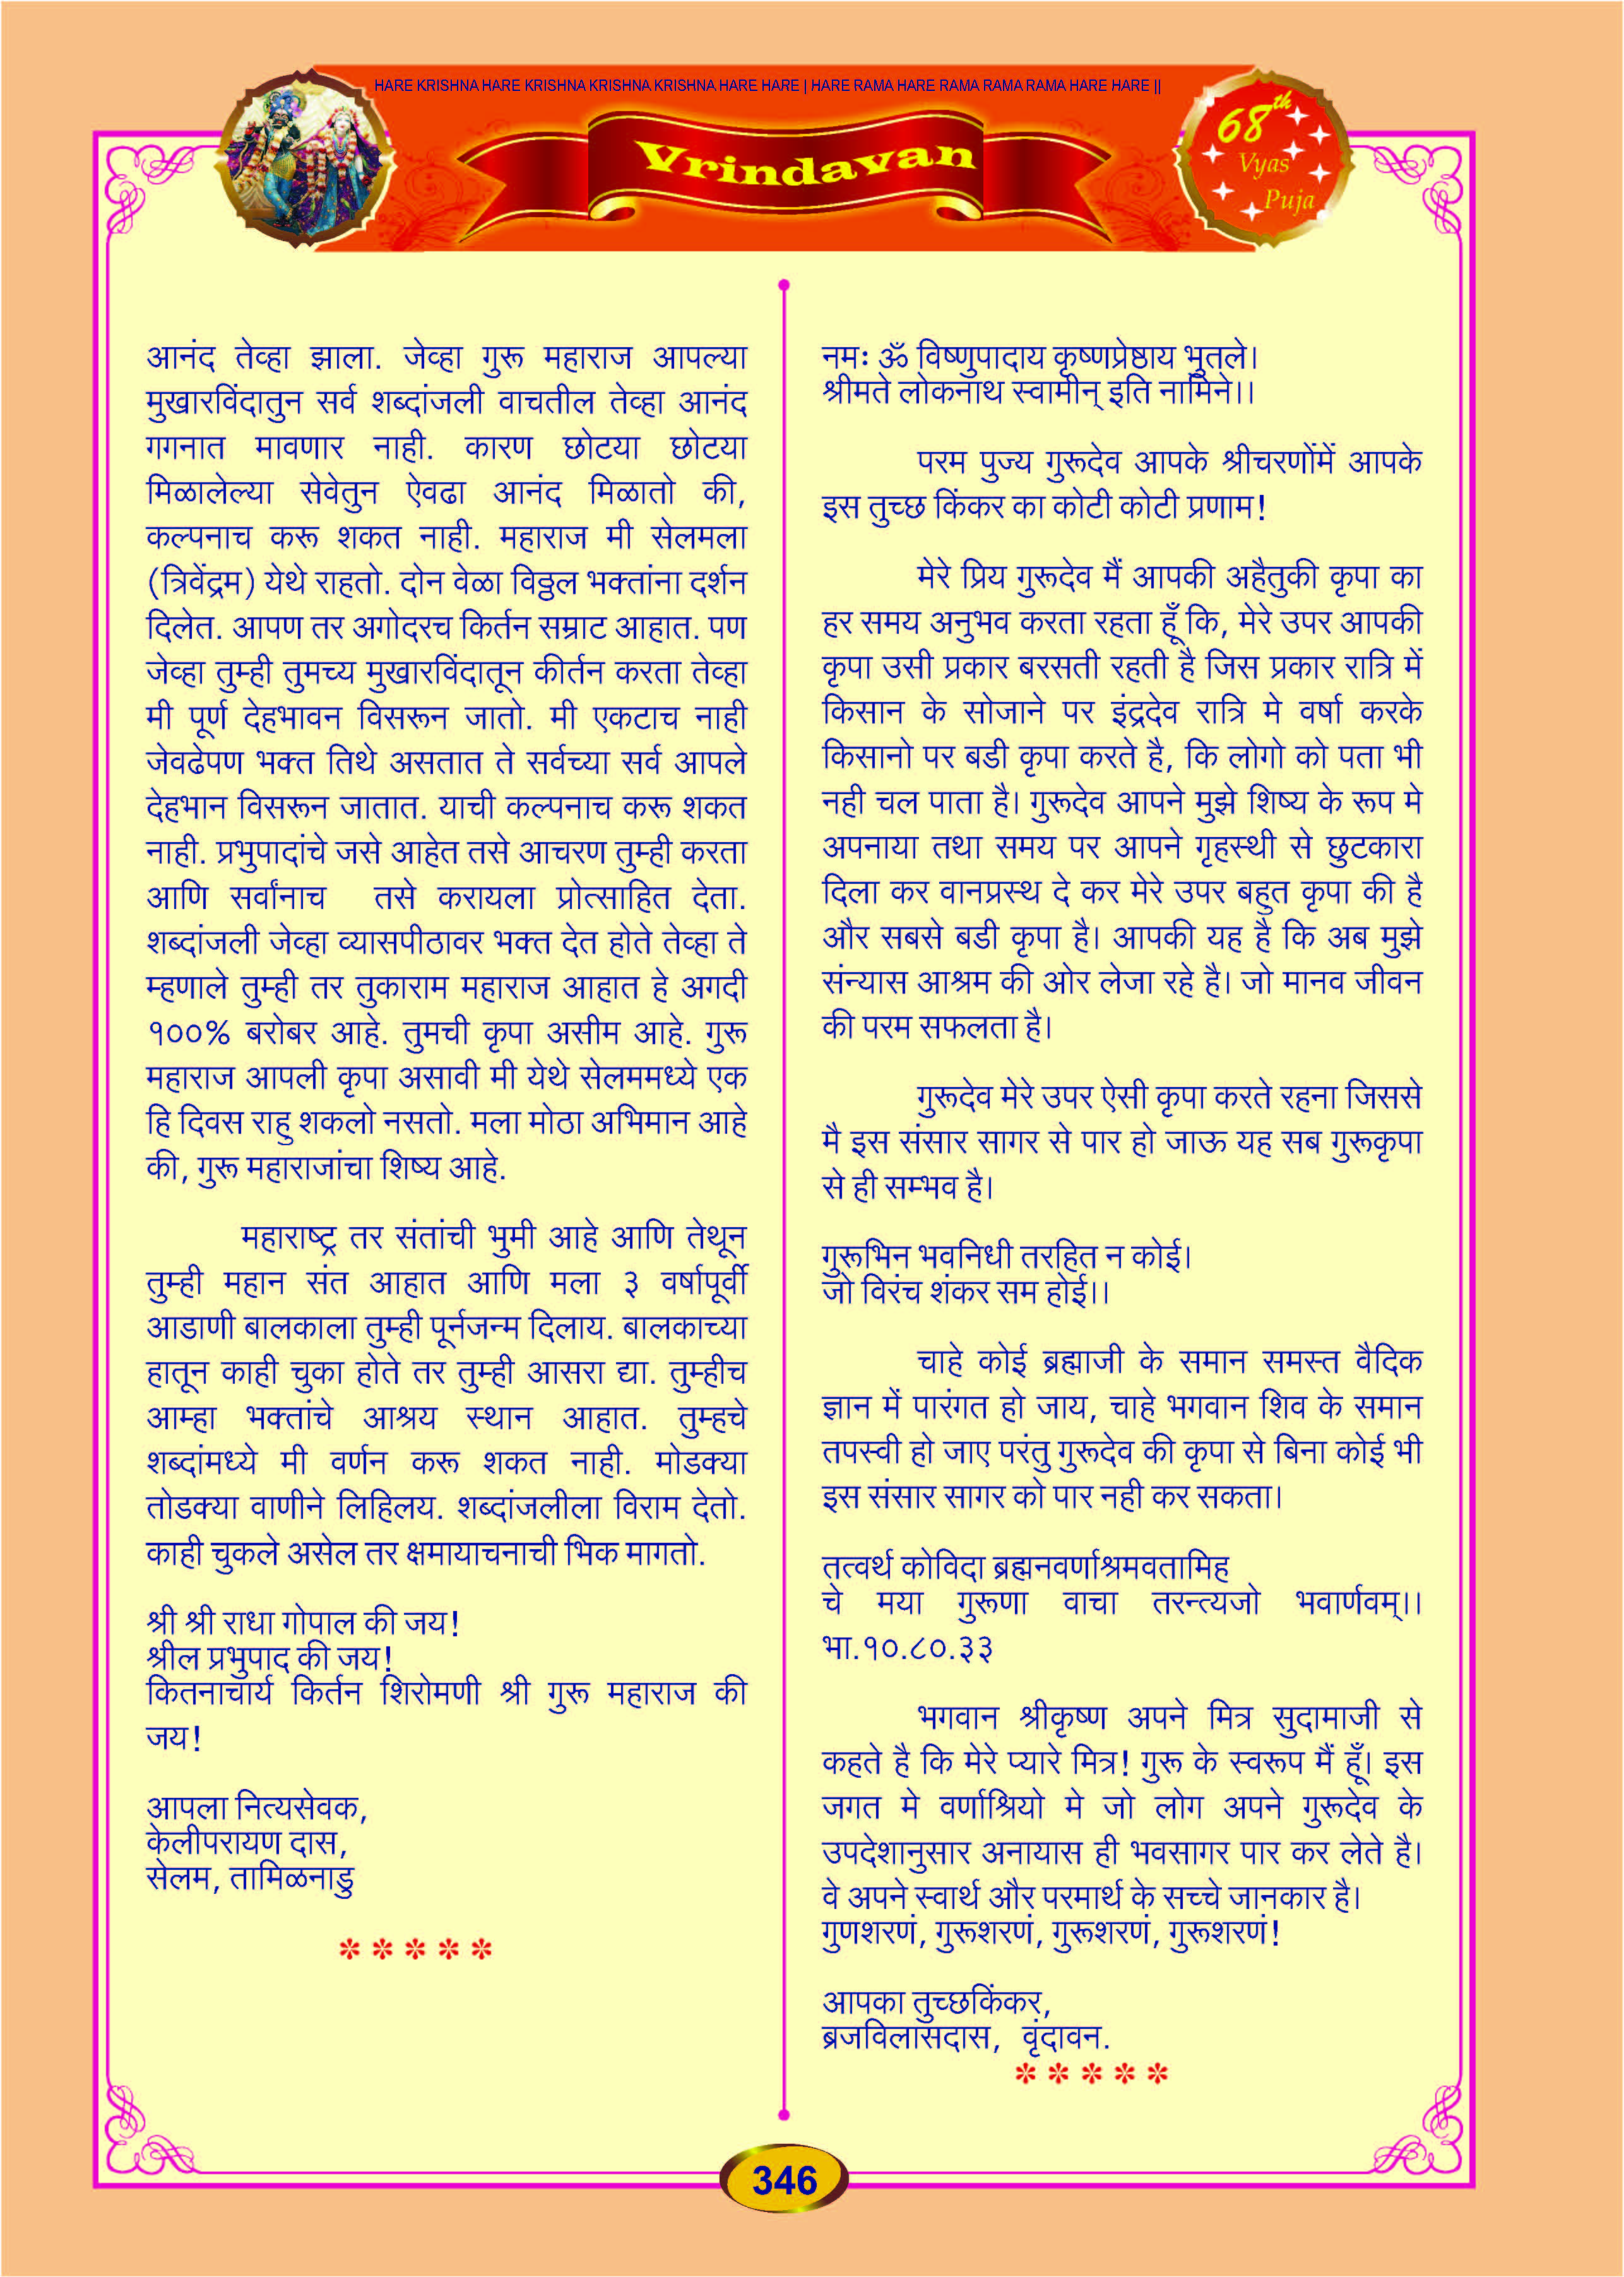 HARE KRISHNA HARE KRISHNA KRISHNA KRISHNA HARE HARE | HARE RAMA HARE RAMA RAMA RAMA HARE HARE ||
Vrindavan
68th
Vyas
Puja
आनंद तेव्हा झाला. जेव्हा गुरू महाराज आपल्या
मुखारविंदातुन सर्व शब्दांजली वाचतील तेव्हा आनंद
गगनात मावणार नाही. कारण छोटया छोटया
मिळालेल्या सेवेतुन ऐवढा आनंद मिळातो की,
कल्पनाच करू शकत नाही. महाराज मी सेलमला
(त्रिवेंद्रम) येथे राहतो. दोन वेळा विठ्ठल भक्तांना दर्शन
दिलेत. आपण तर अगोदरच किर्तन सम्राट आहात. पण
जेव्हा तुम्ही तुमच्य मुखारविंदातून कीर्तन करता तेव्हा
मी पूर्ण देहभावन विसरून जातो. मी एकटाच नाही
जेवढेपण भक्त तिथे असतात ते सर्वच्या सर्व आपले
देहभान विसरून जातात. याची कल्पनाच करू शकत
नाही. प्रभुपादांचे जसे आहेत तसे आचरण तुम्ही करता
आणि सर्वांनाच तसे करायला प्रोत्साहित देता.
शब्दांजली जेव्हा व्यासपीठावर भक्त देत होते तेव्हा ते
म्हणाले तुम्ही तर तुकाराम महाराज आहात हे अगदी
१००% बरोबर आहे. तुमची कृपा असीम आहे. गुरू
महाराज आपली कृपा असावी मी येथे सेलममध्ये एक
हि दिवस राहु शकलो नसतो. मला मोठा अभिमान आहे
की, गुरू महाराजांचा शिष्य आहे.
महाराष्ट्र तर संतांची भुमी आहे आणि तेथून
तुम्ही महान संत आहात आणि मला ३ वर्षापूर्वी
आडाणी बालकाला तुम्ही पूर्नजन्म दिलाय. बालकाच्या
हातून काही चुका होते तर तुम्ही आसरा द्या. तुम्हीच
आम्हा भक्तांचे आश्रय स्थान आहात. तुम्हचे
शब्दांमध्ये मी वर्णन करू शकत नाही. मोडक्या
तोडक्या वाणीने लिहिलय. शब्दांजलीला विराम देतो.
काही चुकले असेल तर क्षमायाचनाची भिक मागतो.
श्री श्री राधा गोपाल की जय!
श्रील प्रभुपाद की जय!
कितनाचार्य किर्तन शिरोमणी श्री गुरू महाराज की
जय!
आपला नित्यसेवक,
केलीपरायण दास,
सेलम, तामिळनाडु
*****
नमः ॐ विष्णुपादाय कृष्णप्रेष्ठाय भुतले।
श्रीमते लोकनाथ स्वामीन् इति नामिने।।
परम पुज्य गुरूदेव आपके श्रीचरणोंमें आपके
इस तुच्छ किंकर का कोटी कोटी प्रणाम!
मेरे प्रिय गुरूदेव मैं आपकी अहैतुकी कृपा का
हर समय अनुभव करता रहता हूँ कि, मेरे उपर आपकी
कृपा उसी प्रकार बरसती रहती है जिस प्रकार रात्रि में
किसान के सोजाने पर इंद्रदेव रात्रि मे वर्षा करके
किसानो पर बडी कृपा करते है, कि लोगो को पता भी
नही चल पाता है। गुरूदेव आपने मुझे शिष्य के रूप मे
अपनाया तथा समय पर आपने गृहस्थी से छुटकारा
दिला कर वानप्रस्थ दे कर मेरे उपर बहुत कृपा की है
और सबसे बडी कृपा है। आपकी यह है कि अब मुझे
संन्यास आश्रम की ओर लेजा रहे है। जो मानव जीवन
की परम सफलता है।
गुरूदेव मेरे उपर ऐसी कृपा करते रहना जिससे
मै इस संसार सागर से पार हो जाऊ यह सब गुरूकृपा
से ही सम्भव है।
गुरूभिन भवनिधी तरहित न कोई।
जो विरंच शंकर सम होई।।
चाहे कोई ब्रह्माजी के समान समस्त वैदिक
ज्ञान में पारंगत हो जाय, चाहे भगवान शिव के समान
तपस्वी हो जाए परंतु गुरूदेव की कृपा से बिना कोई भी
इस संसार सागर को पार नही कर सकता।
तत्वर्थ कोविदा ब्रह्मनवर्णाश्रमवतामिह
चे मया गुरूणा वाचा तरन्त्यजो भवार्णवम्।।
भा.१०.८०.३३
भगवान श्रीकृष्ण अपने मित्र सुदामाजी से
कहते है कि मेरे प्यारे मित्र! गुरू के स्वरूप मैं हूँ। इस
जगत मे वर्णाश्रियो मे जो लोग अपने गुरूदेव के
उपदेशानुसार अनायास ही भवसागर पार कर लेते है।
वे अपने स्वार्थ और परमार्थ के सच्चे जानकार है।
गुणशरणं, गुरूशरणं, गुरूशरणं, गुरूशरणं!
आपका तुच्छकिंकर,
ब्रजविलासदास, वृंदावन.
*****
346